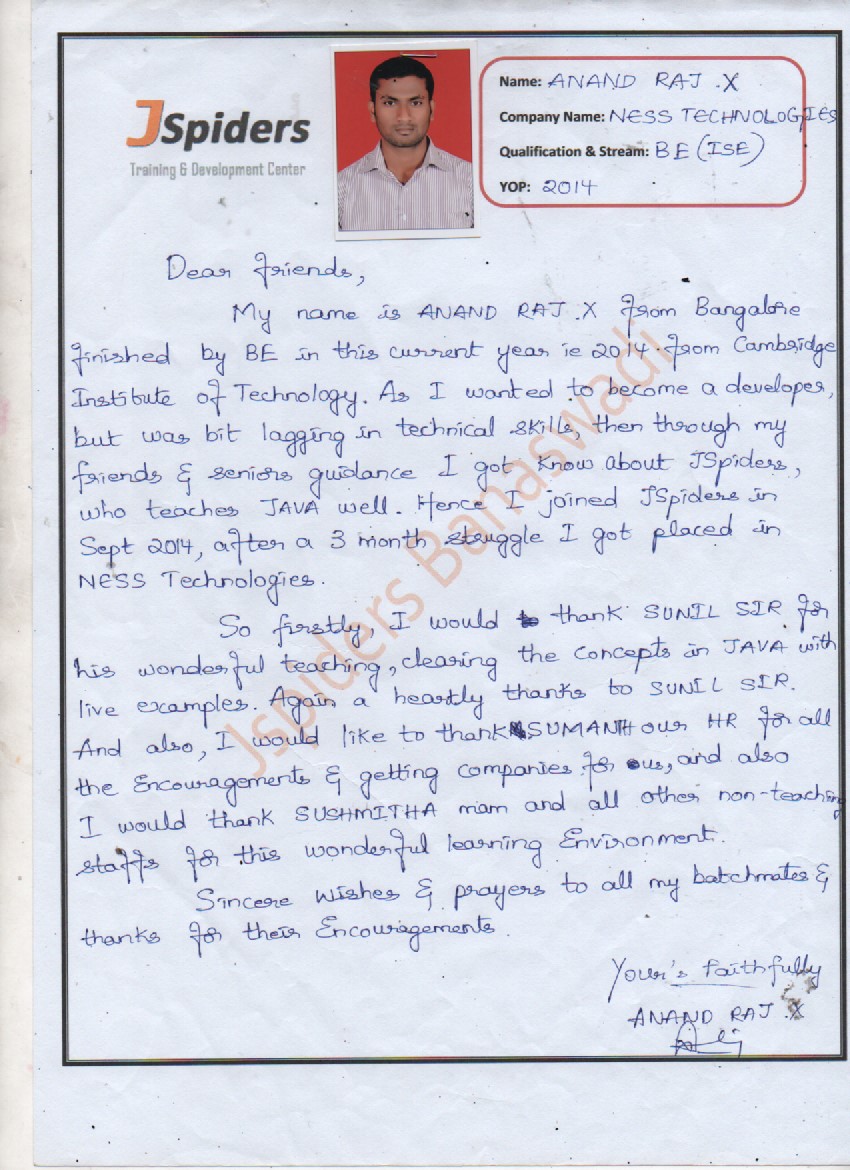 JSpiders
Training & Development Center
Name: ANAND RAJ .X
Company Name: NESS TECHNOLOGIES
Qualification & Stream: BE (ISE)
YOP: 2014
Dear friends,
My name is ANAND RAJ .X from Bangalore
finished by BE in this current year ie 2014 from Cambridge
Institute of Technology. As I wanted to become a developer,
but was bit lagging in technical skills, then through my
friends & seniors guidance I got know about JSpiders,
who teaches JAVA well. Hence I joined JSpiders in
Sept 2014, after a 3 month struggle I got placed in
NESS Technologies.
So firstly, I would thank SUNIL SIR for
his wonderful teaching, clearing the concepts in JAVA with
live examples. Again a heartly thanks to SUNIL SIR.
And also, I would like to thank SUMANTH our HR for all
the Encouragements & getting companies for us, and also
I would thank SUSHMITHA mam and all other non-teaching
staffs for this wonderful learning Environment.
Sincere wishes & prayers to all my batchmates &
thanks for their Encouragements.
Your's faithfully
ANAND RAJ .X
Jspiders Banaswadi